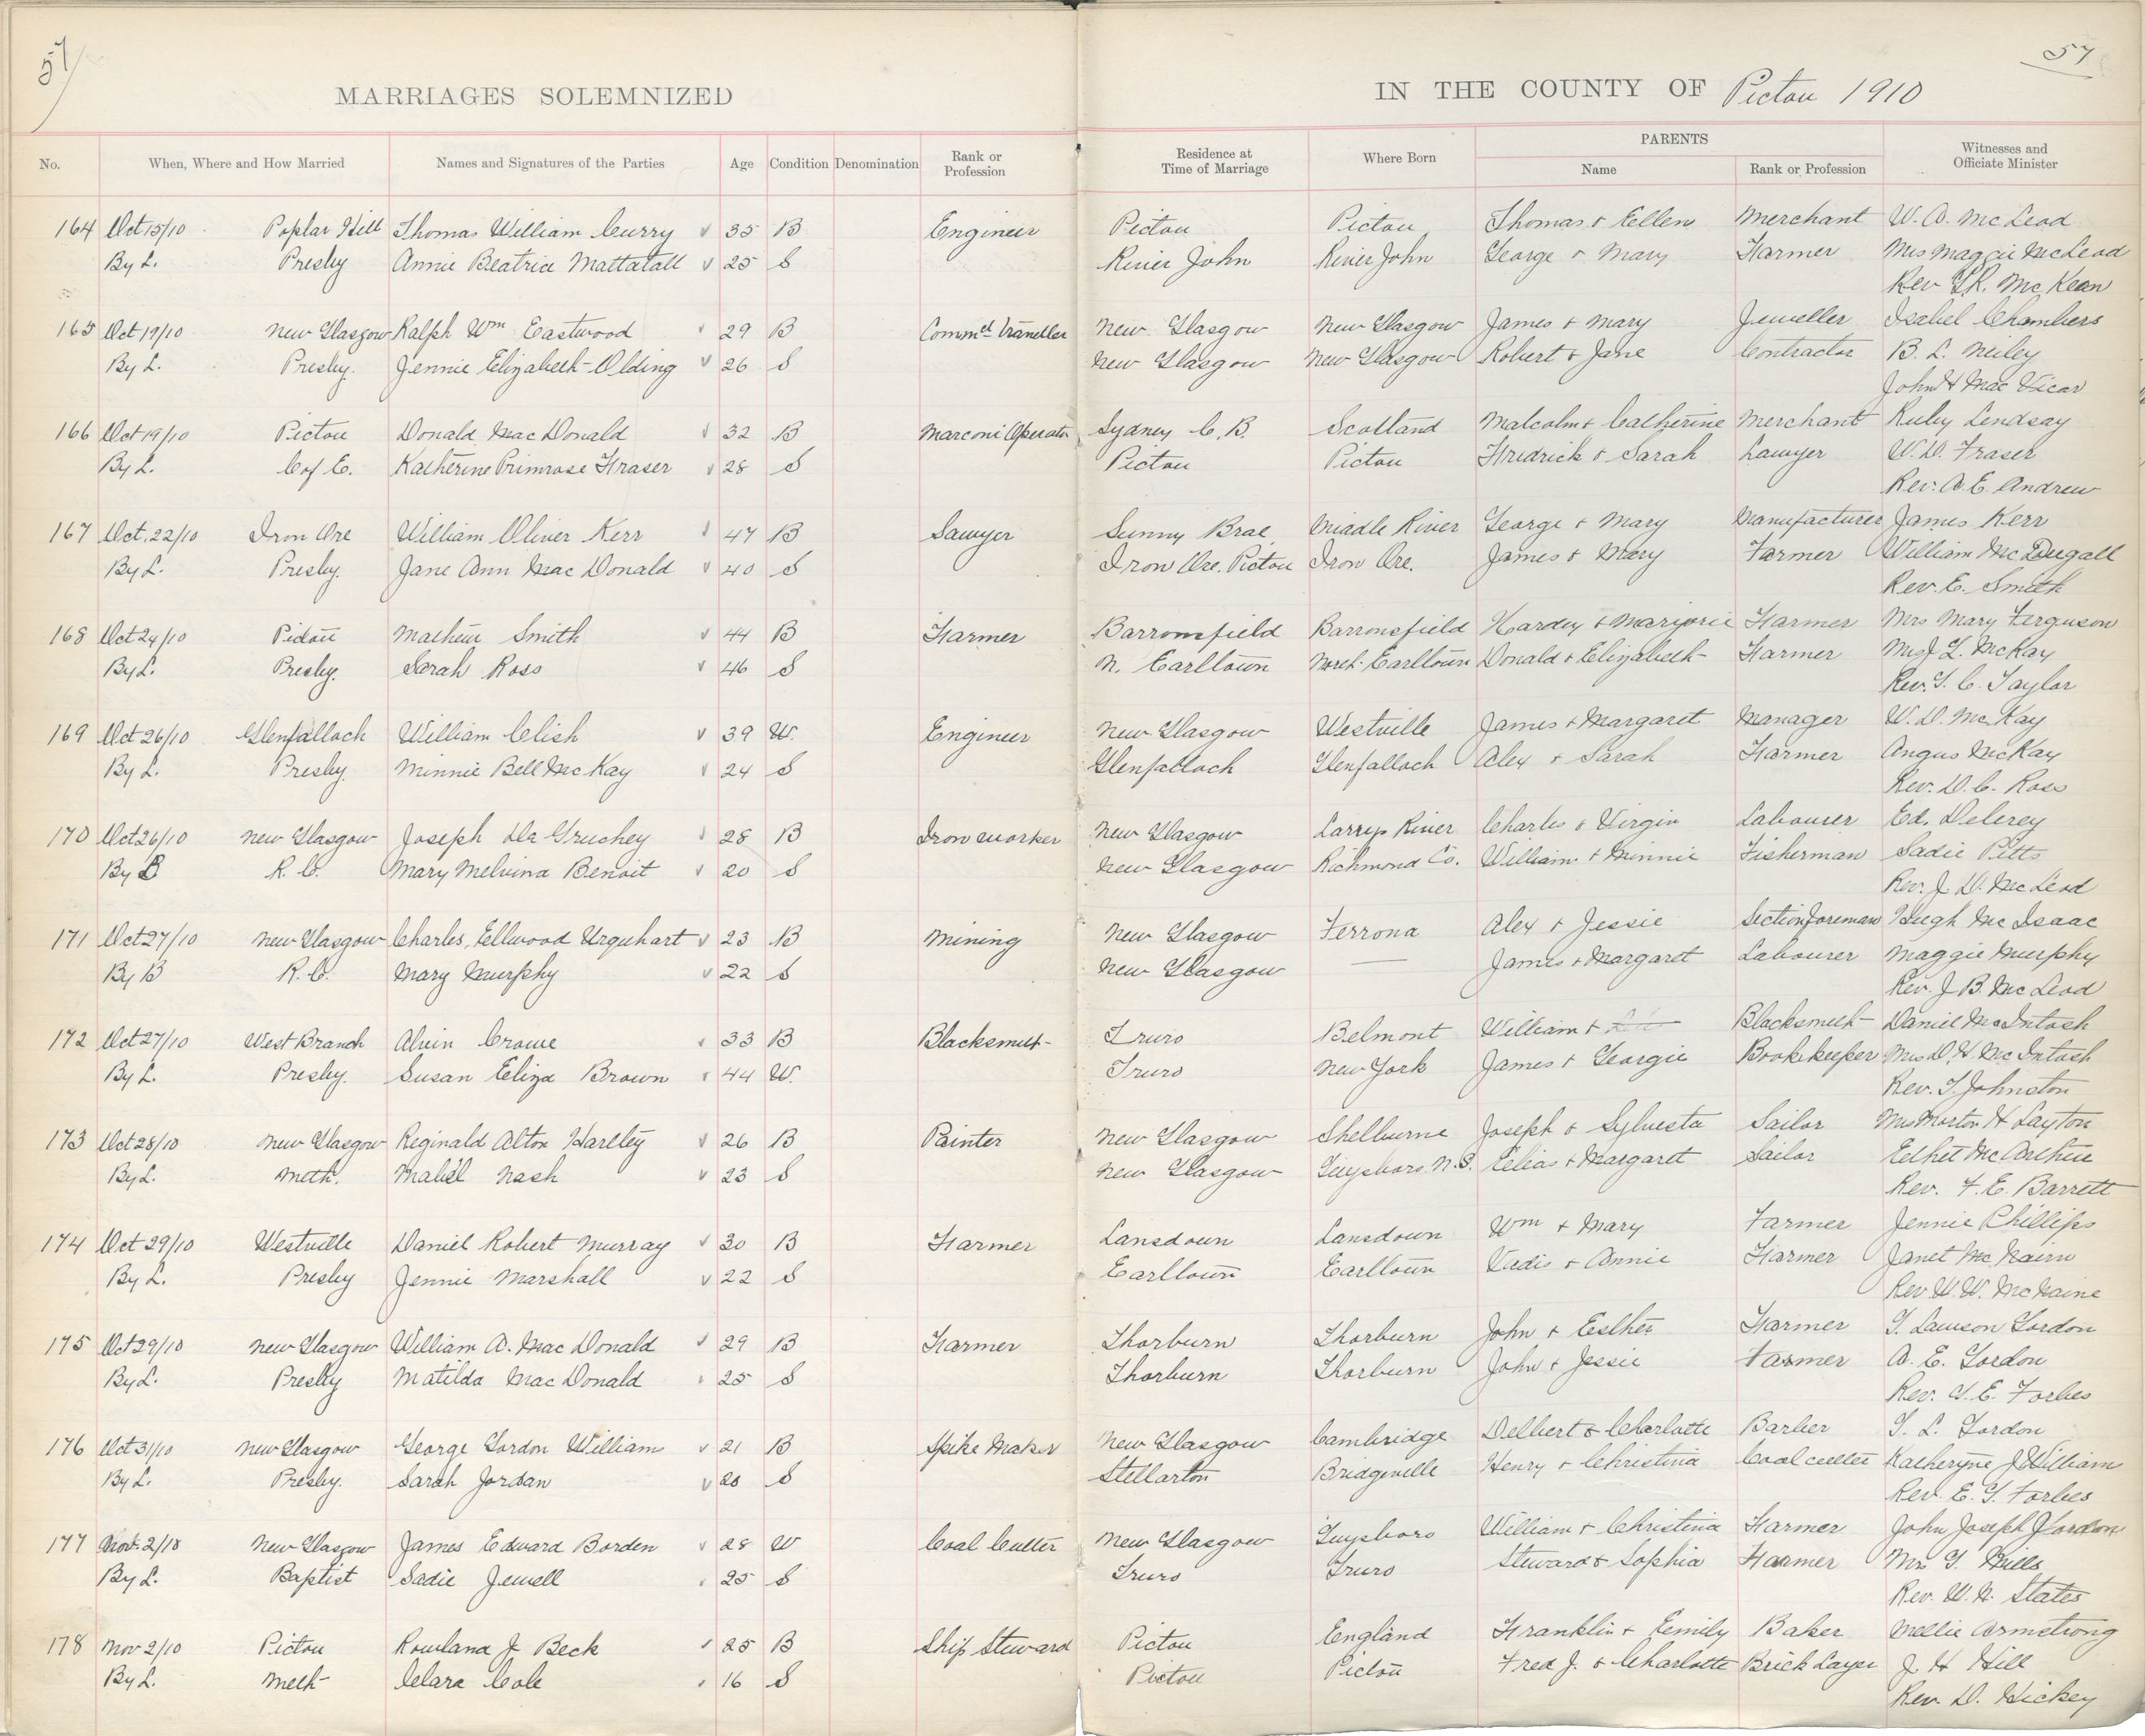 57
57
MARRIAGES SOLEMNIZED IN THE COUNTY OF Pictou 1910
No. When, Where and How Married Names and Signatures of the Parties Age Condition Denomination Rank or Profession Residence at Time of Marriage Where Born PARENTS Name Rank or Profession Witnesses and Officiate Minister
164 Oct 15/10 Poplar Hill Thomas William Curry 35 B Engineer Pictou Pictou Thomas + Ellen Merchant W. A. McLeod
By L. Presby Annie Beatrice Mattatall 25 S River John River John George + Mary Farmer Mrs Maggie McLeod
Rev G.R. McKean
165 Oct 19/10 New Glasgow Ralph Wm Eastwood 29 B Commcl Traveller New Glasgow New Glasgow James + Mary Jeweller Isabel Chambers
By L. Presby. Jennie Elizabeth Olding 26 S New Glasgow New Glasgow Robert + Jane Contractor B. L. Neiley
John H MacVicar
166 Oct 19/10 Pictou Donald MacDonald 32 B Marconi Operator Sydney C.B. Scotland Malcolm + Catherine Merchant Ruby Lendsay
By L. C of E. Katherine Primrose Fraser 28 S Pictou Pictou Fredrick + Sarah Lawyer W. D. Fraser
Rev. A E. Andrew
167 Oct. 22/10 Iron Ore William Oliver Kerr 47 B Sawyer Sunny Brae Middle River George + Mary Manufacturer James Kerr
By L. Presby. Jane Ann MacDonald 40 S Iron Ore, Pictou Iron Ore. James + Mary Farmer William McDugall
Rev. E. Smith
168 Oct 24/10 Pictou Mathew Smith 44 B Farmer Barronsfield Barronsfield Hardey + Marjorie Farmer Mrs Mary Ferguson
By L. Presby. Sarah Ross 46 S N. Earltown North Earltown Donald + Elizabeth Farmer McKay
Rev. G. C. Taylor
169 Oct 26/10 Glenfalloch William Clish 39 W. Engineer New Glasgow Westville James + Margaret Manager W. D. McKay
By L. Presby. Minnie Bell McKay 24 S Glenfalloch Glenfalloch Alex + Sarah Farmer Angus McKay
Rev. D. C. Ross
170 Oct 26/10 New Glasgow Joseph De Gruchey 28 B Iron worker New Glasgow Larrys River Charles + Virgin Labourer Ed. Delerey
By B R. C. Mary Melvina Benoit 20 S New Glasgow Richmond Co. William + Minnie Fisherman Sadie Pitts
Rev. J. D. McLeod
171 Oct 27/10 New Glasgow Charles Ellwood Urquhart 23 B Mining New Glasgow Ferrona Alex + Jessie Section foreman Hugh McIsaac
By B R. C. Mary Murphy 22 S New Glasgow — James + Margaret Labourer Maggie Murphy
Rev. J B. McLeod
172 Oct 27/10 West Branch Alvin Crowe 33 B Blacksmith Truro Belmont William + Blacksmith Daniel McIntosh
By L. Presby. Susan Eliza Brown 44 W. Truro New York James + Georgie Bookkeeper Mrs D. H. McIntosh
Rev. T. Johnston
173 Oct 28/10 New Glasgow Reginald Alton Hartley 26 B Painter New Glasgow Shelburne Joseph + Sylvesta Sailor Mrs Morton H Layton
By L. Meth. Mabel Nash 23 S New Glasgow Guysboro N.S. Elias + Margaret Sailor Ethel McArthur
Rev. F. E. Barrett
174 Oct 29/10 Westville Daniel Robert Murray 30 B Farmer Lansdown Lansdown Wm + Mary Farmer Jennie Phillips
By L. Presby Jennie Marshall 22 S Earltown Earltown + Annie Farmer Janet McNairn
Rev W. W. McNaine
175 Oct 29/10 New Glasgow William A. MacDonald 29 B Farmer Thorburn Thorburn John + Esther Farmer G. Lawson Gordon
By L. Presby Matilda MacDonald 25 S Thorburn Thorburn John + Jessie Farmer A. E. Gordon
Rev. E. Forbes
176 Oct 31/10 New Glasgow George Gordon Williams 21 B Spike Maker New Glasgow Cambridge Delbert + Charlotte Barber G. L. Gordon
By L. Presby. Sarah Jordan 20 S Stellarton Bridgeville Henry + Christina Coal cutter Katheryne J William
Rev. E. G. Forbes
177 Nov. 2/10 New Glasgow James Edward Borden 28 W Coal Cutter New Glasgow Guysboro William + Christina Farmer John Joseph Jordon
By L. Baptist Sadie Jewell 25 S Truro Truro Steward + Sophia Farmer Mrs G. Mills
Rev. W. N. States
178 Nov 2/10 Pictou Rowland J Beck 25 B Ship Steward Pictou England Franklin + Emily Baker Mellie Armstrong
By L. Meth Clara Cole 16 S Pictou Pictou Fred J. + Charlotte Brick Layer J. H Hill
Rev. D. Hickey